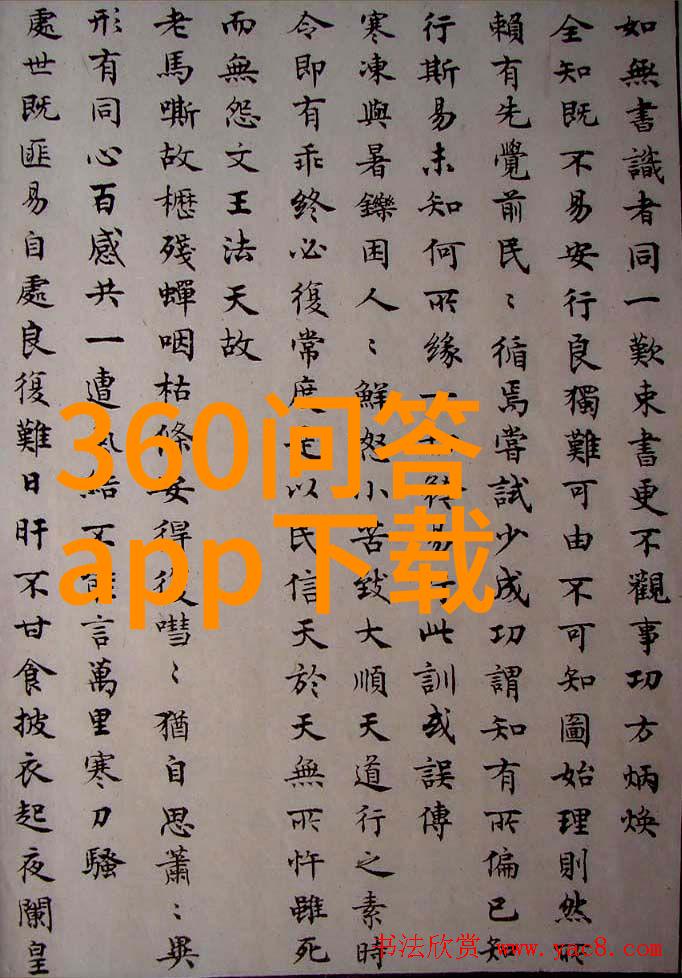 如無書識者同一歎束書更不觀事功方炳煥
全知既不易安行良獨難可由不可知圖始理則然所
賴有先覺前民〻循焉嘗試少成功謂知有所偏已知
行斯易未知何所緣易此訓或誤傳
寒凍與暑鑠困人〻鮮怒小苦致大順天道行之素時
令即有乖終必復常度是以民信天於天無所忤雖死
而無怨文王法天故
老馬嘶故櫪殘蟬咽枯條安得復嘒〻猶自思蕭〻異
形有同心百感共一遭結不能言萬里寒刀騷
處世既匪易自處良復難日旰不甘食披衣起夜闌皇
360问答
app下载
书法欣赏 www.yac8.com